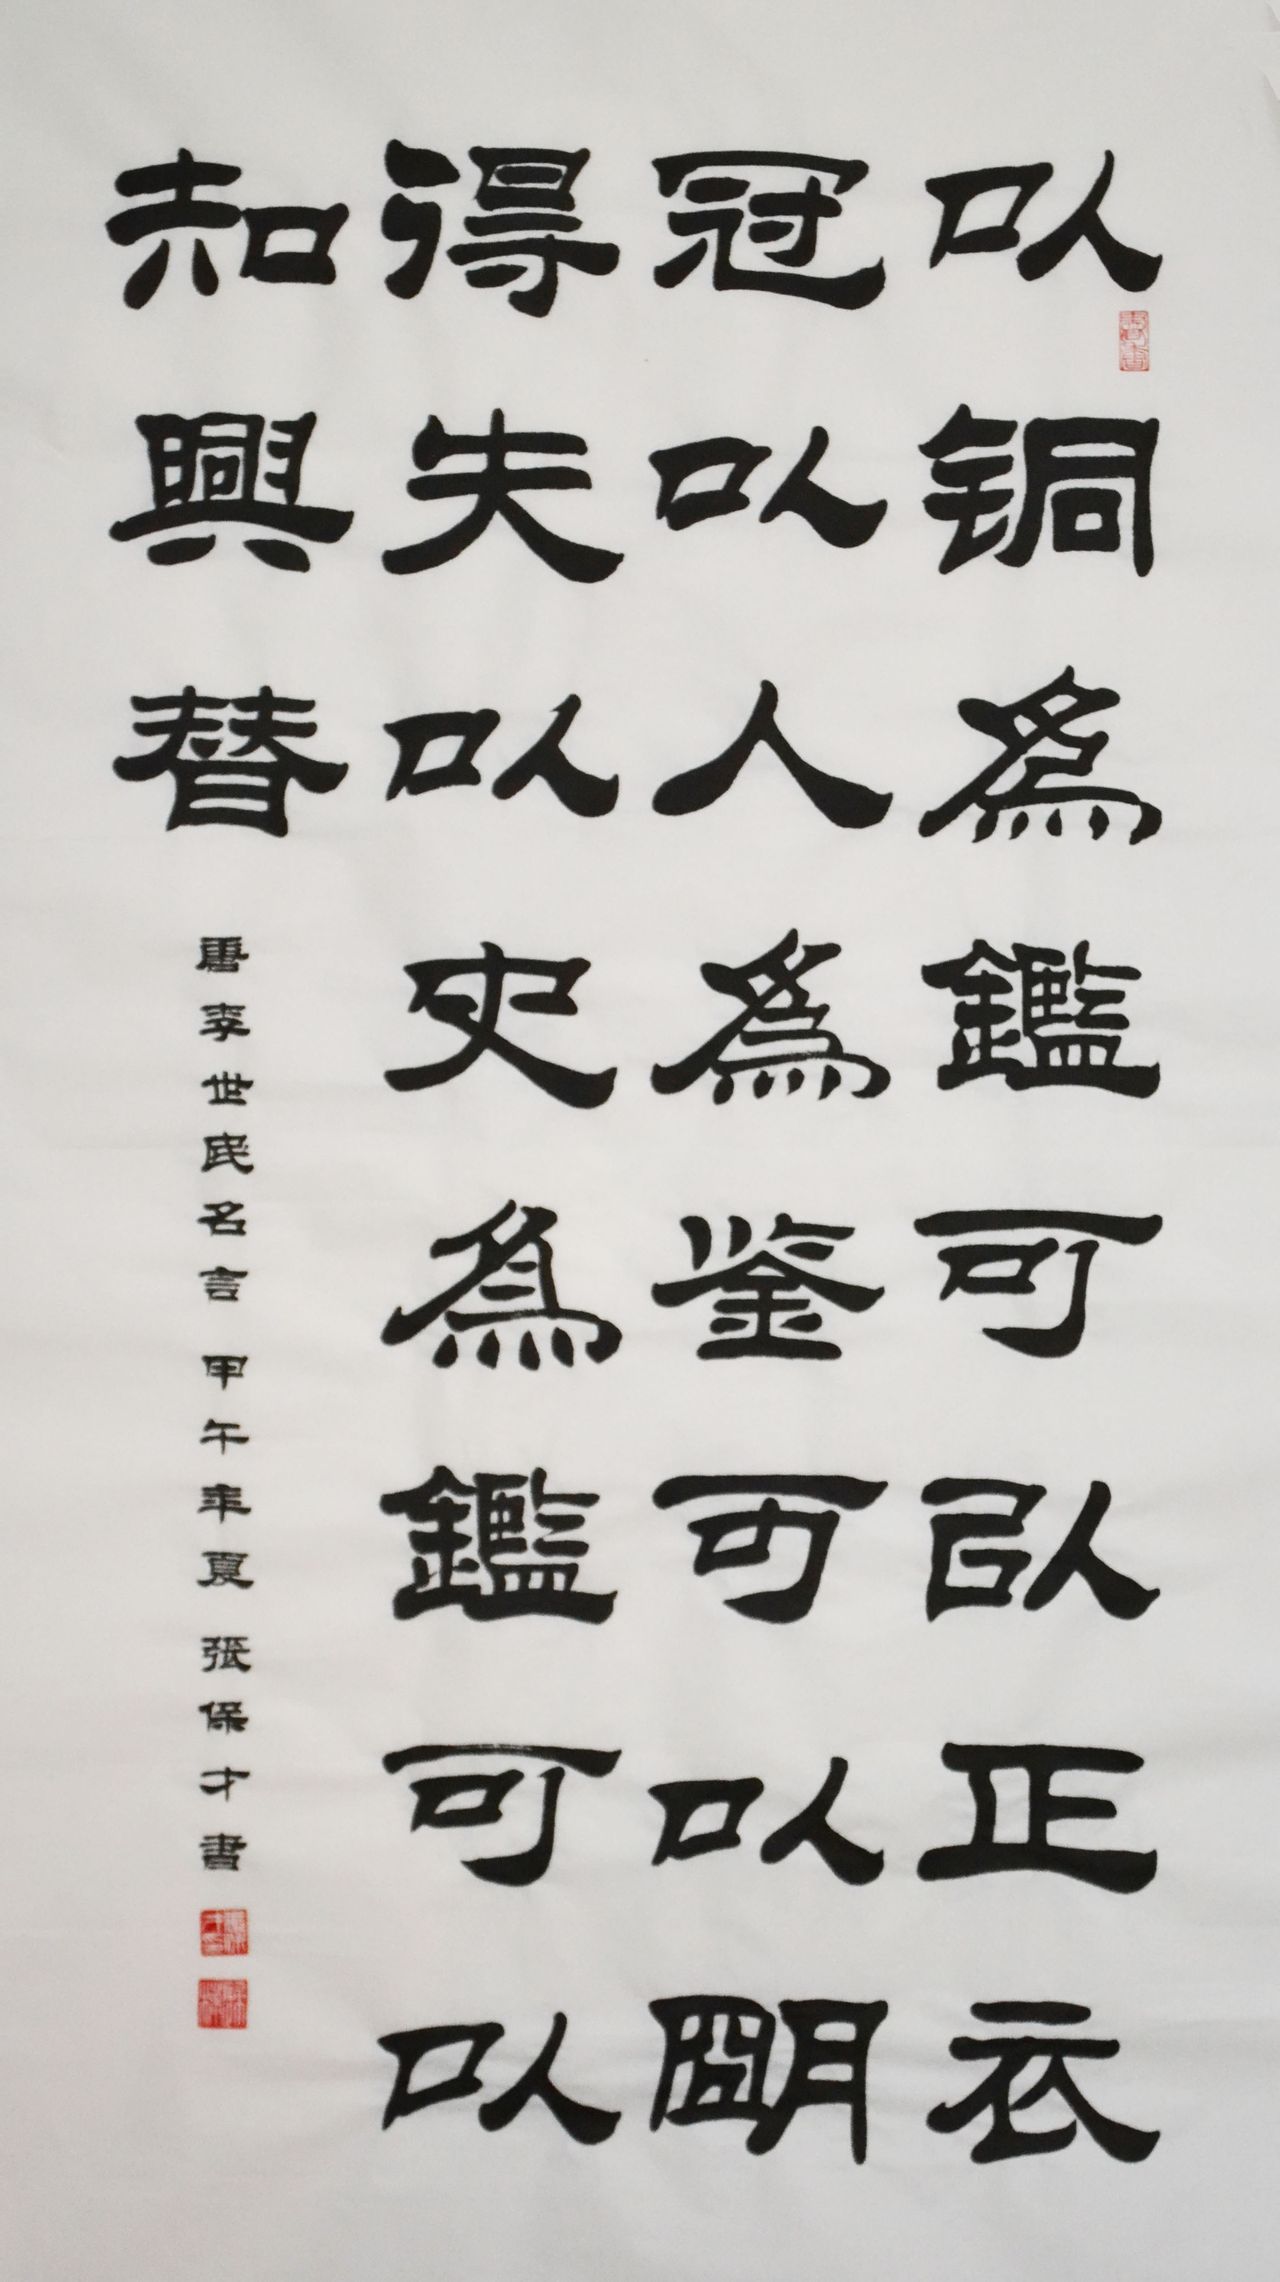 以铜為鑑可以正衣
冠以人為鉴可以明
得失以史為鑑可以
知興替
唐李世民名言 甲午年夏 張保才書